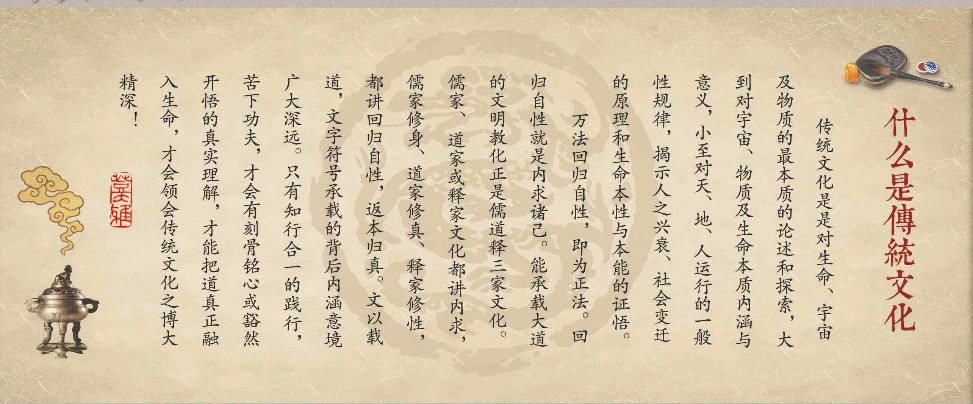 什么是傳統文化
传统文化是是对生命、宇宙
及物质的最本质的论述和探索，大
到对宇宙、物质及生命本质内涵与
意义，小至对天、地、人运行的一般
性规律，揭示人之兴衰、社会变迁
的原理和生命本性与本能的证悟。
万法回归自性，即为正法。回
归自性就是内求诸己。能承载大道
的文明教化正是儒道释三家文化。
儒家、道家或释家文化都讲内求，
儒家修身、道家修真、释家修性，
都讲回归自性，返本归真。文以载
道，文字符号承载的背后内涵意境
广大深远。只有知行合一的践行，
苦下功夫，才会有刻骨铭心或豁然
开悟的真实理解，才能把道真正融
入生命，才会领会传统文化之博大
精深！